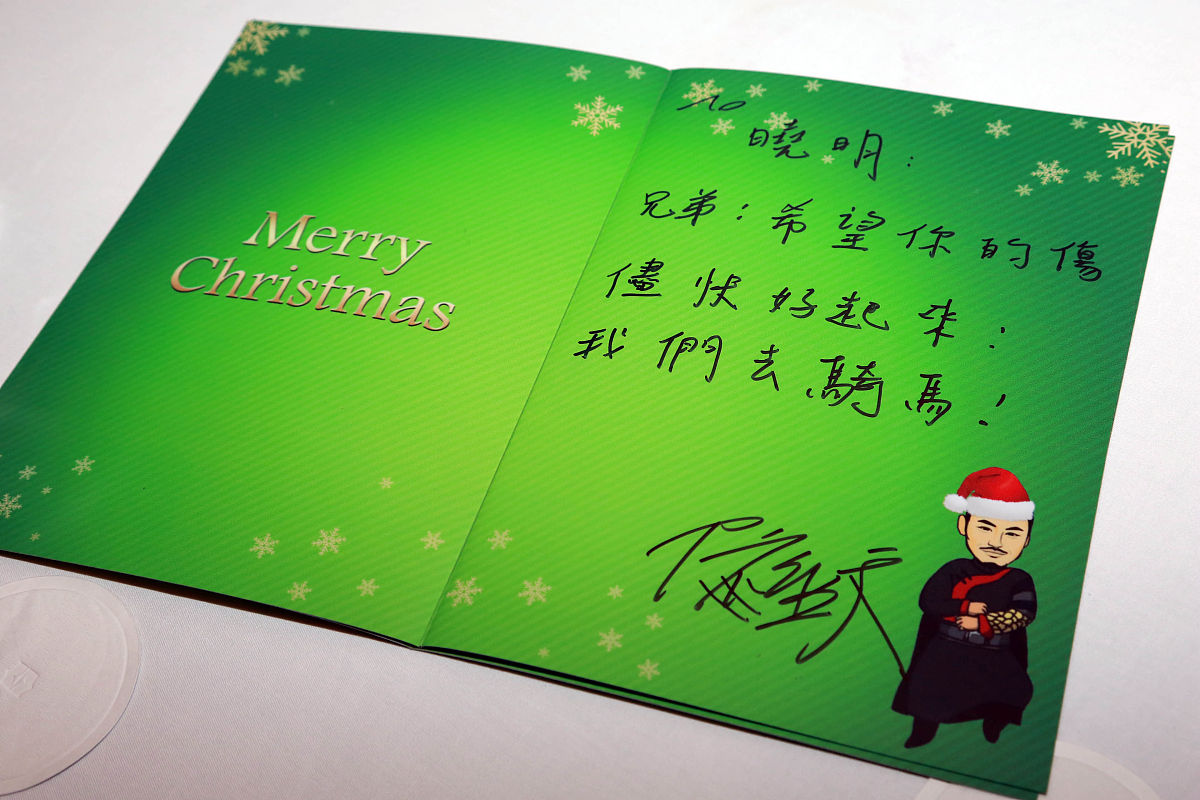 Merry
Christmas
To
曉明：
兄弟：希望你的傷
儘快好起來：
我們去騎馬！